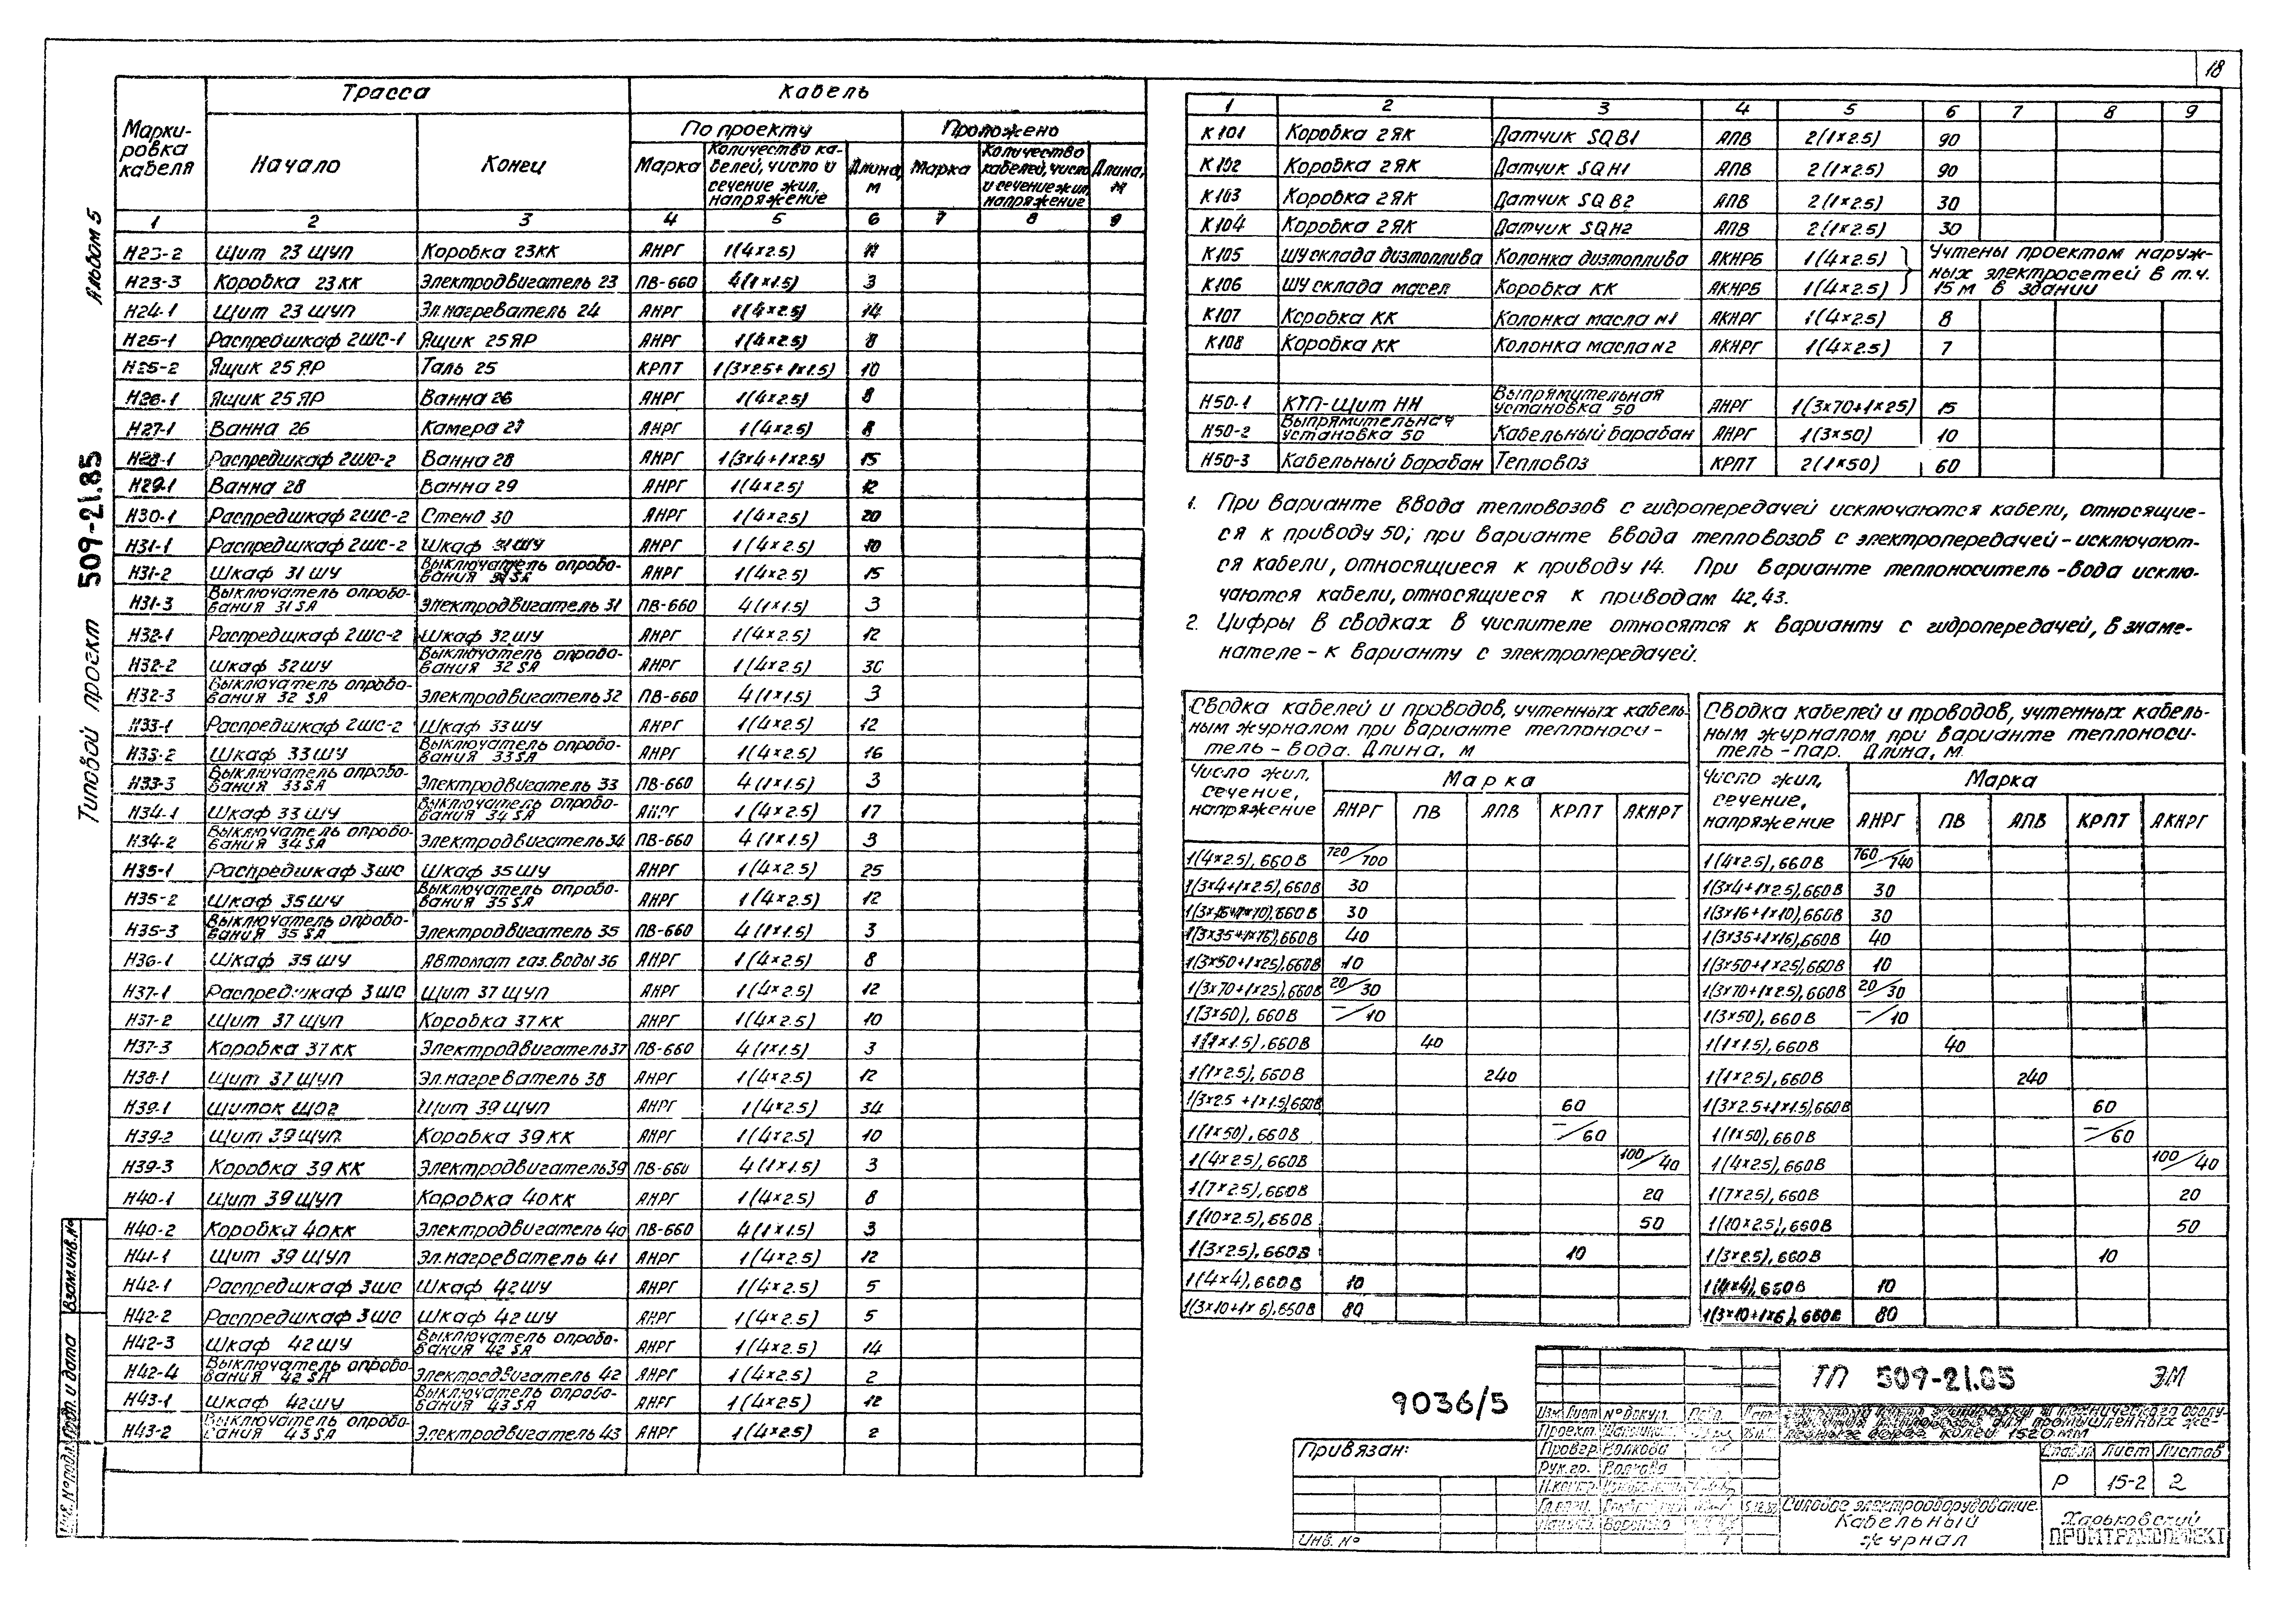 18
Альбом 5
Типовой проект 509-21.85
Взам.инв.№
Подп. и дата
Марки-ровка кабеля | Трасса | Кабель
Начало | Конец | По проекту | Проложено
Марка | Количество ка-белей, число и сечение жил, напряжение | Длина, м | Марка | Количество кабелей, число и сечение жил, напряжение | Длина, м
1 | 2 | 3 | 4 | 5 | 6 | 7 | 8 | 9
Н23-2 | Щит 23 ЩУП | Коробка 23КК | АНРГ | 1(4×2.5)
Н23-3 | Коробка 23 КК | Электродвигатель 23 | ПВ-660 | 4(1×1.5) | 3
Н24-1 | Щит 23 ЩУП | Эл.нагреватель 24 | АНРГ | 1(4×2.5) | 14
Н25-1 | Распредшкаф 2ШС-1 | Ящик 25ЯР | АНРГ | 1(4×2.5) | 8
Н25-2 | Ящик 25 ЯР | Таль 25 | КРПТ | 1(3×2.5+1×1.5) | 10
Н26-1 | Ящик 25 ЯР | Ванна 26 | АНРГ | 1(4×2.5) | 8
Н27-1 | Ванна 26 | Камера 27 | АНРГ | 1(4×2.5) | 8
Н28-1 | Распредшкаф 2ШС-2 | Ванна 28 | АНРГ | 1(3×4+1×2.5) | 15
Н29-1 | Ванна 28 | Ванна 29 | АНРГ | 1(4×2.5) | 12
Н30-1 | Распредшкаф 2ШС-2 | Стенд 30 | АНРГ | 1(4×2.5) | 20
Н31-1 | Распредшкаф 2ШС-2 | Шкаф 31ШУ | АНРГ | 1(4×2.5) | 10
Н31-2 | Шкаф 31 ШУ | Выключатель опробо-вания 31 SA | АНРГ | 1(4×2.5) | 15
Н31-3 | Выключатель опробо-вания 31 SA | Электродвигатель 31 | ПВ-660 | 4(1×1.5) | 3
Н32-1 | Распредшкаф 2ШС-2 | Шкаф 32ШУ | АНРГ | 1(4×2.5) | 12
Н32-2 | Шкаф 32ШУ | Выключатель опробо-вания 32 SA | АНРГ | 1(4×2.5) | 30
Н32-3 | Выключатель опробо-вания 32 SA | Электродвигатель 32 | ПВ-660 | 4(1×1.5) | 3
Н33-1 | Распредшкаф 2ШС-2 | Шкаф 33ШУ | АНРГ | 1(4×2.5) | 12
Н33-2 | Шкаф 33ШУ | Выключатель опробо-вания 33SA | АНРГ | 1(4×2.5) | 16
Н33-3 | Выключатель опробо-вания 33SA | Электродвигатель 33 | ПВ-660 | 4(1×1.5) | 3
Н34-1 | Шкаф 33 ШУ | Выключатель опробо-вания 34 SA | АНРГ | 1(4×2.5) | 17
Н34-2 | Выключатель опробо-вания 34SA | Электродвигатель 34 | ПВ-660 | 4(1×1.5) | 3
Н35-1 | Распредшкаф 3ШС | Шкаф 35ШУ | АНРГ | 1(4×2.5) | 25
Н35-2 | Шкаф 35ШУ | Выключатель опробо-вания 35SA | АНРГ | 1(4×2.5) | 12
Н35-3 | Выключатель опробо-вания 35 SA | Электродвигатель 35 | ПВ-660 | 4(1×1.5) | 3
Н36-1 | Шкаф 35 ШУ | Автомат газ.воды 36 | АНРГ | 1(4×2.5) | 8
Н37-1 | Распредшкаф 3ШС | Щит 37 ЩУП | АНРГ | 1(4×2.5) | 12
Н37-2 | Щит 37 ЩУП | Коробка 37КК | АНРГ | 1(4×2.5) | 10
Н37-3 | Коробка 37 КК | Электродвигатель 37 | ПВ-660 | 4(1×1.5) | 3
Н38-1 | Щит 37 ЩУП | Эл.нагреватель 38 | АНРГ | 1(4×2.5) | 12
Н39-1 | Щиток ЩО2 | Щит 39 ЩУП | АНРГ | 1(4×2.5) | 34
Н39-2 | Щит 39 ЩУП | Коробка 39 КК | АНРГ | 1(4×2.5) | 10
Н39-3 | Коробка 39 КК | Электродвигатель 39 | ПВ-660 | 4(1×1.5) | 3
Н40-1 | Щит 39 ЩУП | Коробка 40КК | АНРГ | 1(4×2.5) | 8
Н40-2 | Коробка 40КК | Электродвигатель 40 | ПВ-660 | 4(1×1.5) | 3
Н41-1 | Щит 39 ЩУП | Эл.нагреватель 41 | АНРГ | 1(4×2.5) | 12
Н42-1 | Распредшкаф 3ШС | Шкаф 42ШУ | АНРГ | 1(4×2.5) | 5
Н42-2 | Распредшкаф 3ШС | Шкаф 42ШУ | АНРГ | 1(4×2.5) | 5
Н42-3 | Шкаф 42ШУ | Выключатель опробо-вания 42 SA | АНРГ | 1(4×2.5) | 14
Н42-4 | Выключатель опробо-вания 42 SA | Электродвигатель 42 | АНРГ | 1(4×2.5) | 2
Н43-1 | Шкаф 42ШУ | Выключатель опробо-вания 43 SA | АНРГ | 1(4×2.5) | 12
Н43-2 | Выключатель опробо-вания 43 SA | Электродвигатель 43 | АНРГ | 1(4×2.5) | 2
1 | 2 | 3 | 4 | 5 | 6 | 7 | 8 | 9
К101 | Коробка 2ЯК | Датчик SQB1 | АПВ | 2(1×2.5) | 90
К102 | Коробка 2ЯК | Датчик SQH1 | АПВ | 2(1×2.5) | 90
К103 | Коробка 2ЯК | Датчик SQB2 | АПВ | 2(1×2.5) | 30
К104 | Коробка 2ЯК | Датчик SQH2 | АПВ | 2(1×2.5) | 30
К105 | ШУ склада дизтоплива | Колонка дизтоплива | АКНРБ | 1(4×2.5) | Учтены проектом наруж-
К106 | ШУ склада масел | Коробка КК | АКНРБ | 1(4×2.5) | ных электросетей в т.ч. 15м в здании
К107 | Коробка КК | Колонка масла №1 | АКНРГ | 1(4×2.5) | 8
К108 | Коробка КК | Колонка масла №2 | АКНРГ | 1(4×2.5) | 7
Н50-1 | КТП-Щит НН | Выпрямительная установка 50 | АНРГ | 1(3×70+1×25) | 15
Н50-2 | Выпрямительная установка 50 | Кабельный барабан | АНРГ | 1(3×50) | 10
Н50-3 | Кабельный барабан | Тепловоз | КРПТ | 2(1×50) | 60
1. При варианте ввода тепловозов с гидропередачей исключаются кабели, относящие-
ся к приводу 50; при варианте ввода тепловозов с электропередачей - исключают-
ся кабели, относящиеся к приводу 14. При варианте теплоноситель - вода исклю-
чаются кабели, относящиеся к приводам 42,43.
2. Цифры в сводках в числителе относятся к варианту с гидропередачей, в знаме-
нателе - к варианту с электропередачей.
Сводка кабелей и проводов, учтенных кабель-
ным журналом при варианте теплоноси-
тель - вода. Длина, м
Число жил, сечение, напряжение | Марка
АНРГ | ПВ | АПВ | КРПТ | АКНРТ
1(4×2.5), 660 В | 720/700
1(3×4+1×2.5), 660В | 30
1(3×16+1×10), 660 В | 30
1(3×35+1×16), 660В | 40
1(3×50+1×25), 660В | 10
1(3×70+1×25), 660В | 20/30
1(3×50), 660 В | –/10
1(1×1.5), 660В | 40
1(1×2.5), 660В | 240
1(3×2.5+1×1.5), 660В | 60
1(1×50), 660В | –/60
1(4×2.5), 660В | 100/40
1(7×2.5), 660В | 20
1(10×2.5), 660В | 50
1(3×2.5), 660В | 10
1(4×4), 660В | 10
1(3×10+1×6), 660В | 80
Сводка кабелей и проводов, учтенных кабель-
ным журналом при варианте теплоноси-
тель - пар. Длина, м
Число жил, сечение, напряжение | Марка
АНРГ | ПВ | АПВ | КРПТ | АКНРГ
1(4×2.5), 660В | 760/740
1(3×4+1×2.5), 660В | 30
1(3×16+1×10), 660В | 30
1(3×35+1×16), 660В | 40
1(3×50+1×25), 660В | 10
1(3×70+1×2.5), 660В | 20/30
1(3×50), 660В | –/10
1(1×1.5), 660В | 40
1(1×2.5), 660В | 240
1(3×2.5+1×1.5), 660В | 60
1(1×50), 660В | –/60
1(4×2.5), 660В | 100/40
1(7×2.5), 660В | 20
1(10×2.5), 660В | 50
1(3×2.5), 660В | 10
1(4×4), 660В | 10
1(3×10+1×6), 660В | 80
9036/5
Привязан:
Инв. №
ТП 509-21.85 ЭМ
Изм. Лист № докум. Подп.
Проект.
Провер. Волкова
Рук.гр. Волкова
Н.контр.
для промышленных же-
лезных дорог колеи 1520мм
Лист | Листов
Р | 15-2 | 2
Силовое электрооборудование.
Кабельный
журнал
Харьковский
ПРОМТРАНСПРОЕКТ